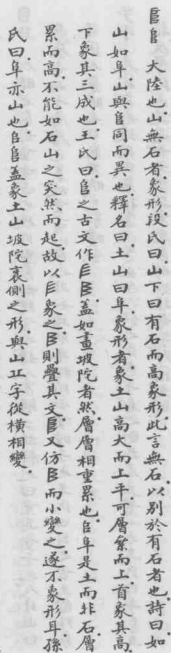 𨸏𨸏大陸也山無石者象形段氏曰山下曰有石而高象形此言無石以别於有石者也詩曰如
山如阜山與𨸏同而異也釋名曰土山曰阜象形者象土山高大而上平可層絫而上首象其高
下象其三成也王氏曰𨸏之古文作𠂤蓋如畫坡陀者然層層相重累也𨸏阜是土而非石層
累而高不能如石山之突然而起故以象之則疊其文又仿而小變之遂不象形耳孫
氏曰阜亦山也𨸏蓋象土山坡陀衺側之形與山㐀字從橫相變